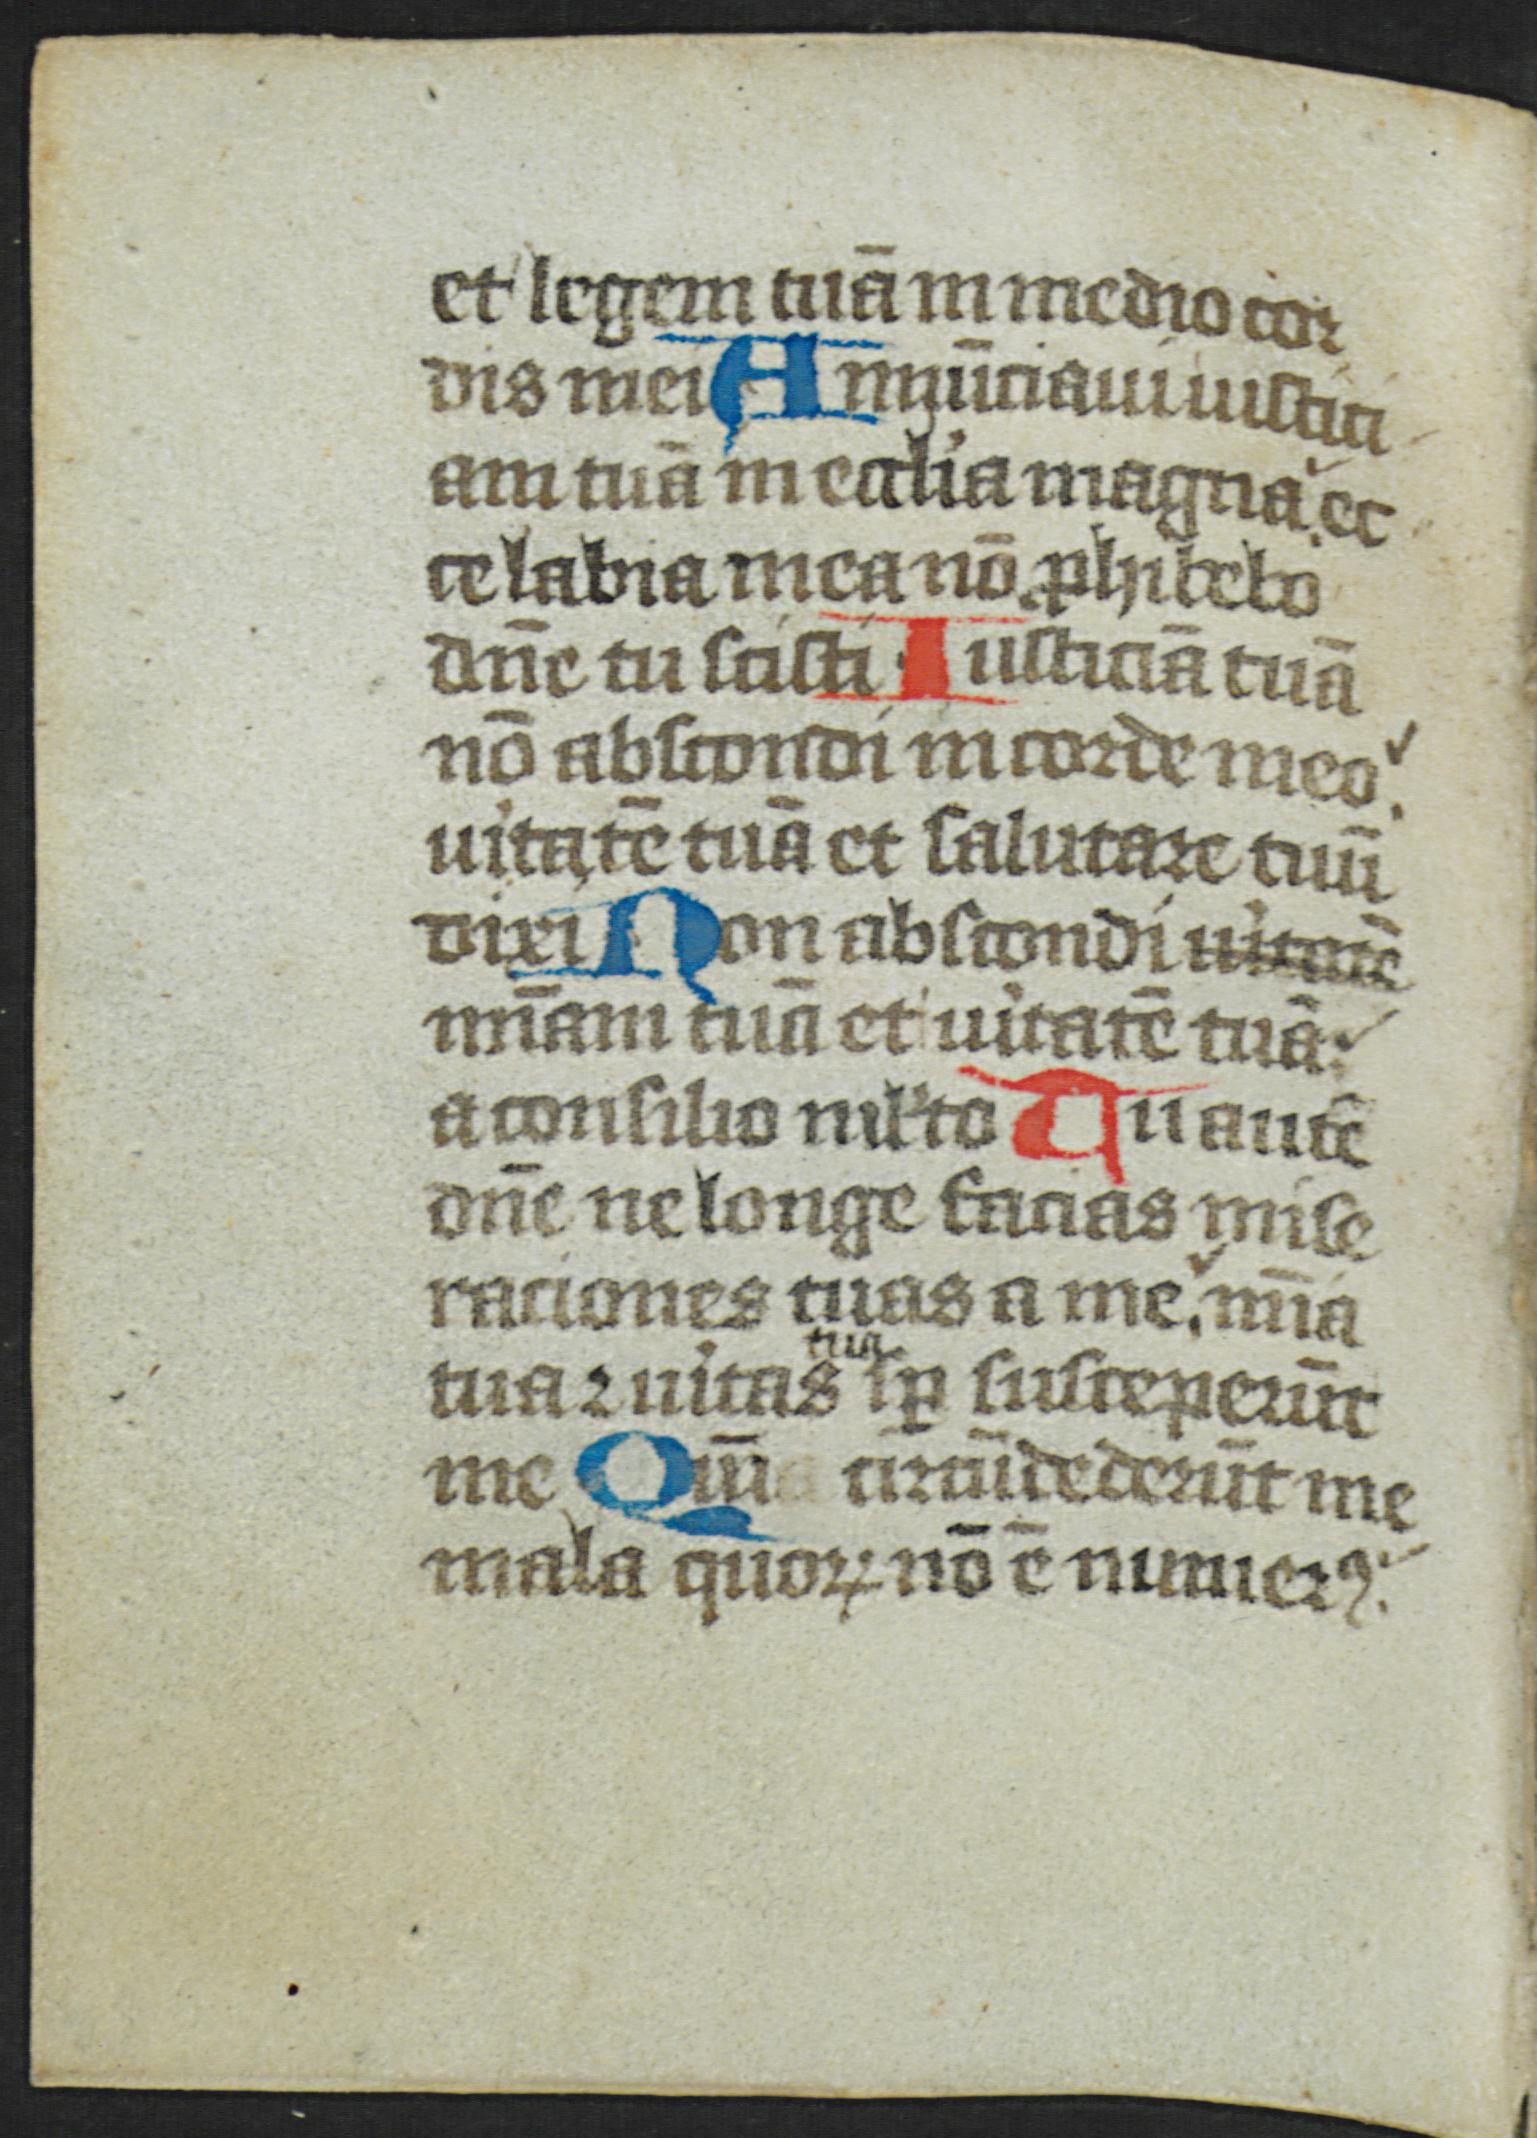 et legem tuā in medio cor
dis mei Annūciaui iustici
am tuā in eccl'ia magna. ec
ce labia mea nō ꝓhibebo
dn̄e tu scisti · Iusticiā tuā
nō abscondi in corde meo.
uitatē tuā et salutare tuū
dixi Non abscondi uitatē
mīam tuā et uitatē tuā.
a consilio mlto Tu autē
dn̄e ne longe facias mise
raciones tuas a me. mīa
tua ⁊ uitas tua sꝑ susceperūt
me Qm̄ circūdederūt me
mala quoꝝ nō ē numerꝰ.